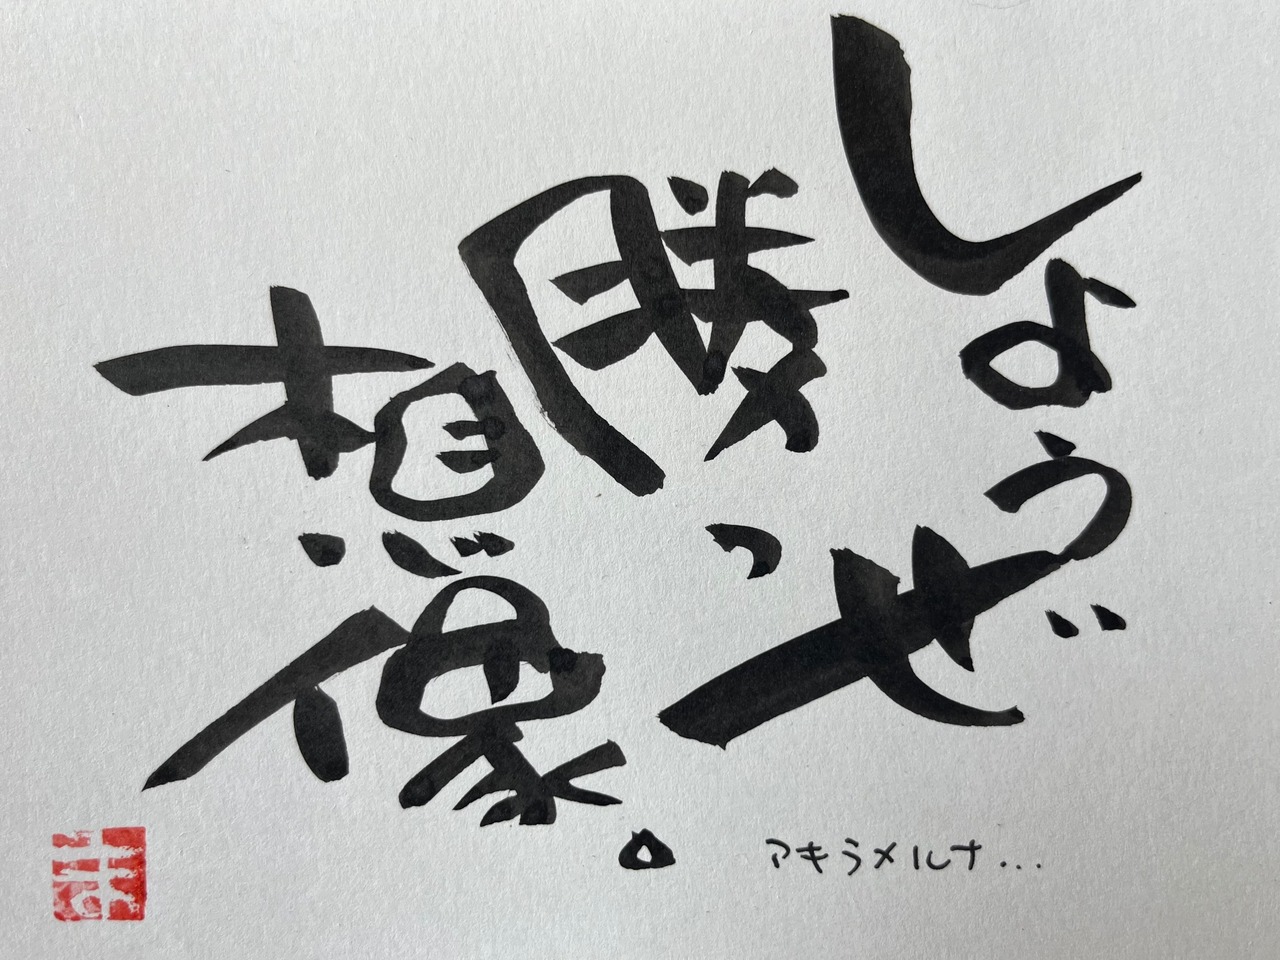 しようぜ
勝つ
想像。
アキラメルナ...